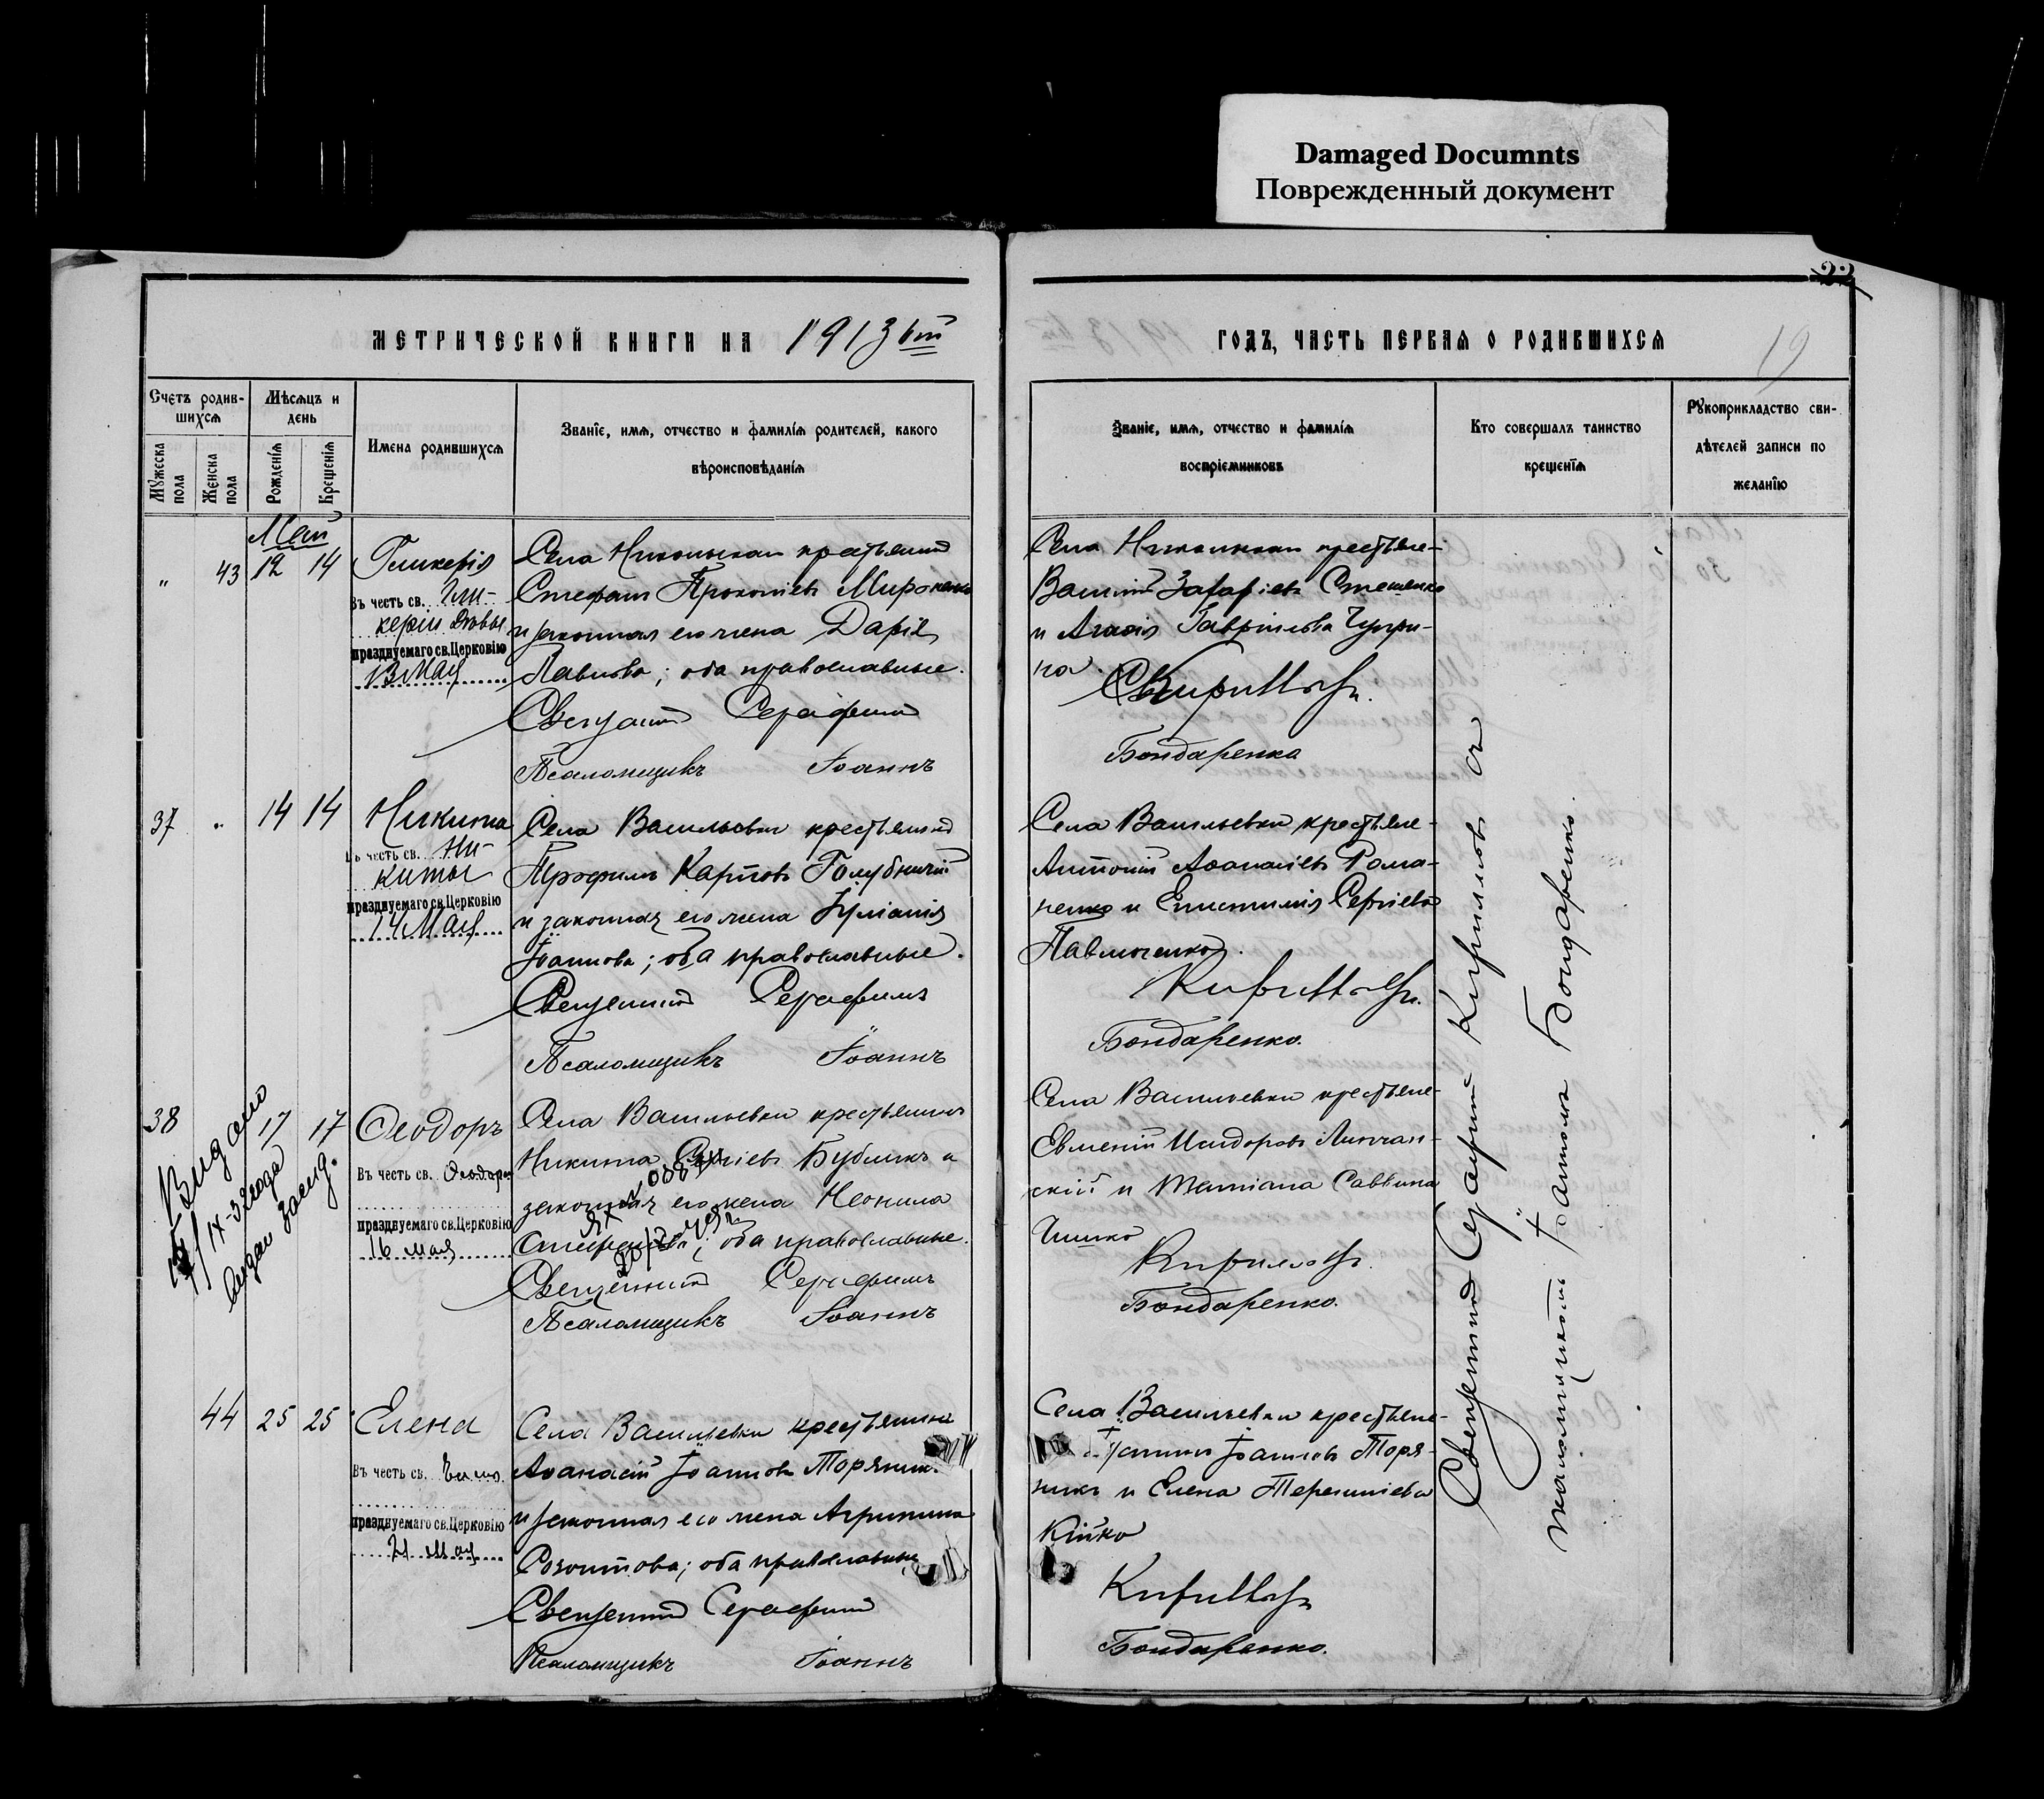 Damaged Documnts
Поврежденный документ
22
19
МЕТРИЧЕСКОЙ КНИГИ НА 1913 ый
ГОДЪ, ЧАСТЬ ПЕРВАЯ О РОДИВШИХСЯ
Счетъ родив-
шихся
Мужеска
пола
Женска
пола
Мѣсяцъ и
день
Рожденія
Крещенія
Имена родившихся
Званіе, имя, отчество и фамилія родителей, какого
вѣроисповѣданія
Званіе, имя, отчество и фамилія
воспріемниковъ
Кто совершалъ таинство
крещенія
Рукоприкладство сви-
дѣтелей записи по
желанію
Май
" 43 12 14
Гликерія
Въ честь св. Гли-
керіи Дѣвы
празднуемаго св. Церковію
13 Мая
Села Никольскаи крестьянинъ
Стефанъ Прокопіевъ Мироненко
и законная его жена Дарія
Павлова; оба православные.
Священникъ Серафимъ
Псаломщикъ Іоаннъ
Села крестьяне-
Василій Захаріевъ Стешенко
и Агаѳія Гавріилова
на.
Кирилловъ.
Бондаренко
37 " 14 14
Никита
Въ честь св. Ни-
киты
празднуемаго св. Церковію
14 Мая
Села Васильевки крестьянинъ
Трофимъ Карповъ Голубничій
и законная его жена Іуліанія
Іоаннова; оба православные.
Священникъ Серафимъ
Псаломщикъ Іоаннъ
Села Васильевки крестьяне-
Антоній Аѳанасіевъ Рома-
ненко и Епистимія Сергіева
Павлюченко.
Кирилловъ.
Бондаренко.
38 17 17
Ѳеодоръ
Въ честь св. Ѳеодора
празднуемаго св. Церковію
16 мая
Видано
IX-32 года
Села Васильевки крестьянинъ
Никита Сергіевъ Бубликъ и
законная его жена Неонила
оба православные.
Священникъ Серафимъ
Псаломщикъ Іоаннъ
Села Васильевки крестьяне-
Евменій Исидоровъ
скій и Татіана Саввина
Чишко
Кирилловъ.
Бондаренко.
44 25 25
Елена
Въ честь св.
празднуемаго св. Церковію
21 Мая
Села Васильевки крестьянинъ
Аѳанасій Іоанновъ Торяник
и законная его жена Агрипина
Созонтова; оба православные
Священникъ Серафимъ
Псаломщикъ Іоаннъ
Села Васильевки крестьяне-
Іоанновъ Торя-
никъ и Елена Терентіева
Кійко
Кирилловъ
Бондаренко.
Священникъ Серафимъ Кирилловъ съ
псаломщикомъ Іоанномъ Бондаренко.